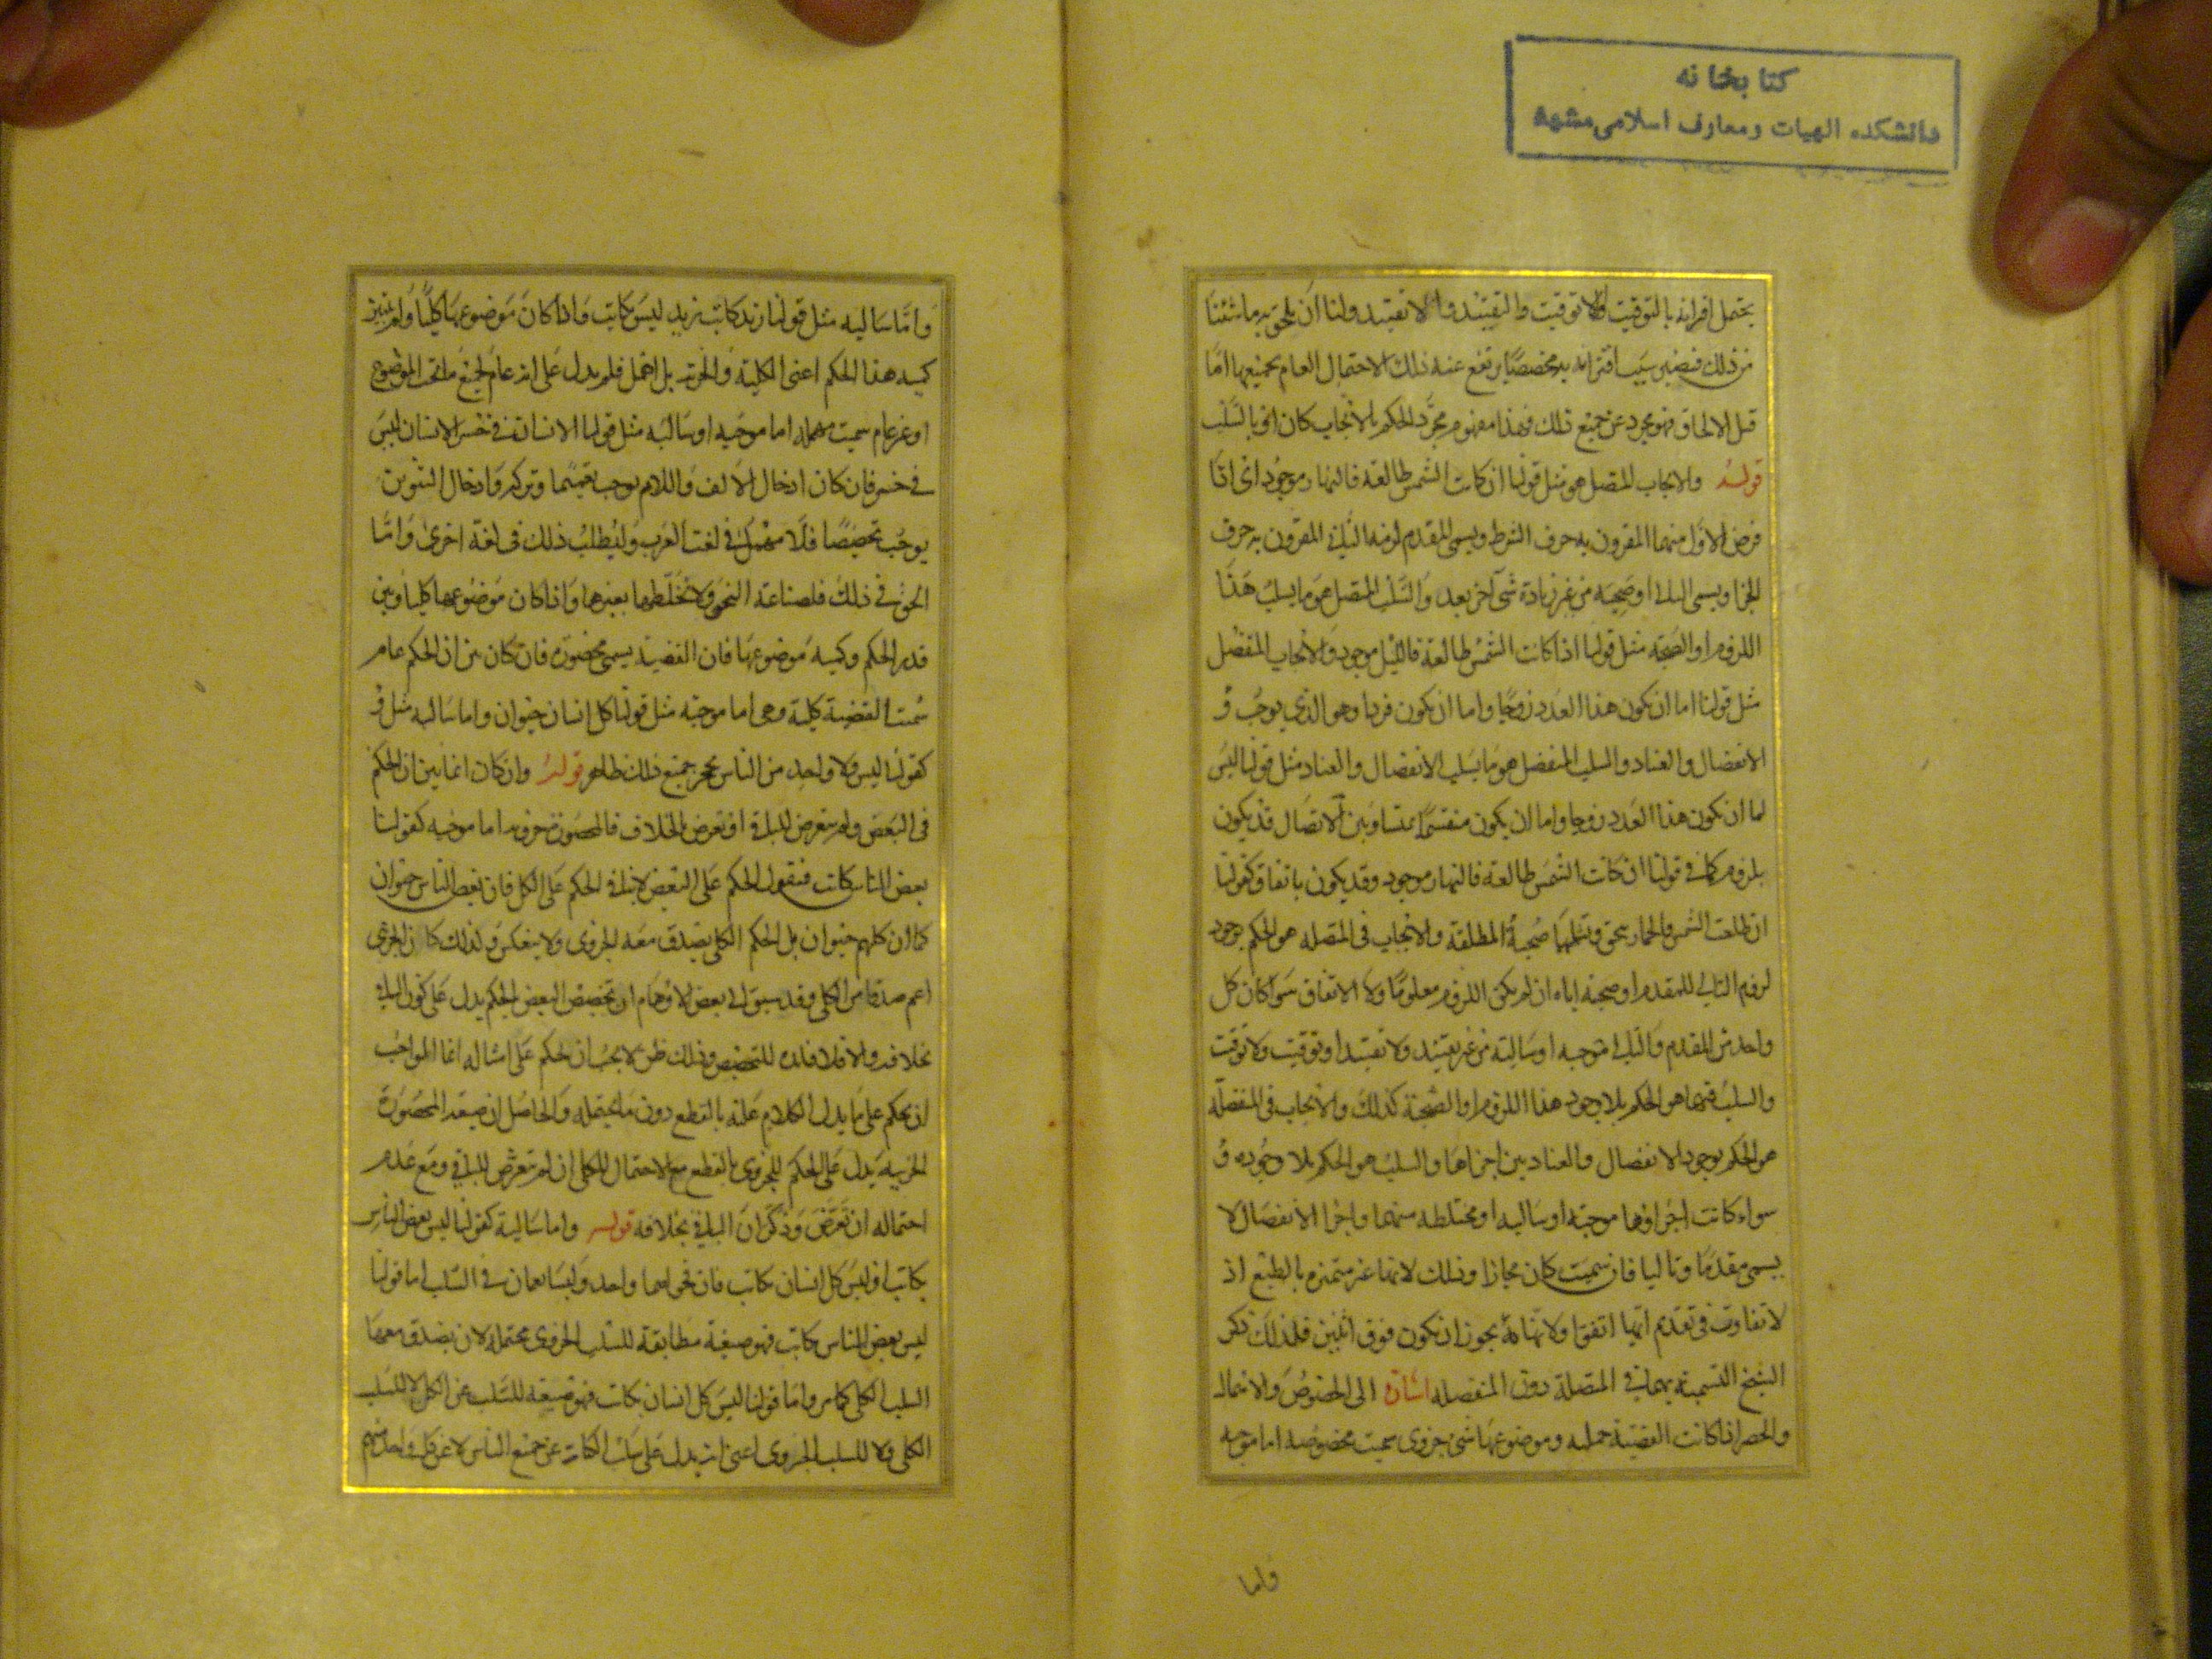 كتابخانه
دانشكده الهيات ومعارف اسلامى مشهد
يحتمل اقرانه بالتوقيت واللاتوقيت والتقييد واللاتقييد ولنا ان يلحق به ما شئنا
من ذلك فيصير بسبب اقترانه به مخصصا يرتفع عنه ذلك الاحتمال العام بجميعها اما
قبل الالحاق فهو مجرد عن جميع ذلك فهذا مفهوم مجرد الحكم بالايجاب كان او بالسلب
قوله والايجاب المتصل هو مثل قولنا ان كانت الشمس طالعة فالنهار موجود اى اذا
فرض الاول منهما المقرون به حرف الشرط ويسمى المقدم لزمه التالى المقرون به حرف
الجزا ويسمى التالى او صحبه من غير زيادة شى آخر بعد والسلب المتصل هو ما يسلب هذا
اللزوم او الصحبة مثل قولنا اذا كانت الشمس طالعة فالليل موجود والايجاب المنفصل
مثل قولنا اما ان يكون هذا العدد زوجا واما ان يكون فردا وهو الذى يوجب
الانفصال والعناد والسلب المنفصل هو ما يسلب الانفصال والعناد مثل قولنا ليس
اما ان يكون هذا العدد زوجا واما ان يكون منقسما بمتساويين الاتصال قد يكون
بلزوم كما فى قولنا ان كانت الشمس طالعة فالنهار موجود وقد يكون باتفاق كقولنا
ان طلعت الشمس فالحمار ينهق ويشملها صحبة المطلقة والايجاب فى المتصله هو الحكم بوجود
لزوم التالى للمقدم او صحبته اياه ان لم يكن اللزوم معلوما ولا الاتفاق سوا كان كل
واحد من المقدم والتالى موجبه او سالبة من غير تقييد ولا تقييد او توقيت ولا توقيت
والسلب فيهما هو الحكم بلا وجود هذا اللزوم او الصحبة كذلك والايجاب فى المنفصلة
هو الحكم بوجود الانفصال والعناد بين اجزاها والسلب هو الحكم بلا وجوده
سواء كانت اجزاوها موجبة او سالبه او مختلطه منهما واجزا الانفصال لا
يسمى مقدما وتاليا فان سميت كان مجازا وذلك لانها غير متميزة بالطبع اذ
لا تفاوت فى تقديم ايها اتفق ولانها يجوز ان تكون فوق اثنين فلذلك ذكر
الشيخ التسمية بهما فى المتصلة دون المنفصله اشارة الى الخصوص والاهمال
والحصر اذا كانت القضية حمليه وموضوعها شى جزوى سميت مخصوصه اما موجبه
واما
واما سالبه مثل قولنا زيد كاتب زيد ليس بكاتب واذا كان موضوعها كليا ولم يتبين
كميه هذا الحكم اعنى الكلية والجزئية بل اهمل فلم يدل على انه عام لجميع ما تحت الموضوع
او غير عام سميت مهمله اما موجبه او سالبه مثل قولنا الانسان فى خسر الانسان ليس
فى خسر فان كان ادخال الالف واللام يوجب تعميما وتركه وادخال التنوين
يوجب تخصيصا فلا مهمل فى لغت العرب وليطلب ذلك فى لغة اخرى واما
الحق فى ذلك فلصناعة النحو ولا تخلطها بغيرها واذا كان موضوعها كليا وبين
قدر الحكم وكميه موضوعها فان القضية يسمى محصورة فان كان بين ان الحكم عام
سميت القضية كلية وهى اما موجبه مثل قولنا كل انسان حيوان واما سالبه مثل
كقولنا ليس ولا واحد من الناس بحجر جميع ذلك ظاهر قوله وان كان انما بين ان الحكم
فى البعض ولم يتعرض للباقى او تعرض بالخلاف فالمحصورة جزويه اما موجبه كقولنا
بعض الناس كاتب فنقول الحكم على البعض لا ينافى الحكم على الكل فان بعض الناس حيوان
كما ان كلهم حيوان بل الحكم الكلى يصدق معه الجزوى ولا ينعكس ولذلك كان الجزئى
اعم صدقا من الكلى وقد سبق الى بعض الاوهام ان تخصيص البعض بالحكم يدل على كون الباقى
بخلافه والا فلا فائده للتخصيص وذلك ظن لا يجب ان يحكم على امثاله انما الواجب
ان يحكم على ما يدل الكلام عليه بالقطع دون ما يحتمله والحاصل ان صيغه المحصورة
الجزئيه يدل على الحكم الجزوى بالقطع مع الاحتمال للكلى ان لم يتعرض للباقى ومع عدم
احتماله ان تعرض وذكر ان الباقى بخلافه قوله واما سالبة كقولنا ليس بعض الناس
بكاتب او ليس كل انسان بكاتب فان فحواهما واحد وليسا يعمان فى السلب اما قولنا
ليس بعض الناس بكاتب فهو صيغة مطابقة للسلب الجزوى محتمله لان يصدق معها
السلب الكلى كما مر واما قولنا ليس كل انسان بكاتب فهو صيغه للسلب عن الكل لا للسلب
الكلى ولا للسلب الجزوى اعنى انه يدل على سلب الكاتب عن جميع الناس لا عن كل واحد منهم